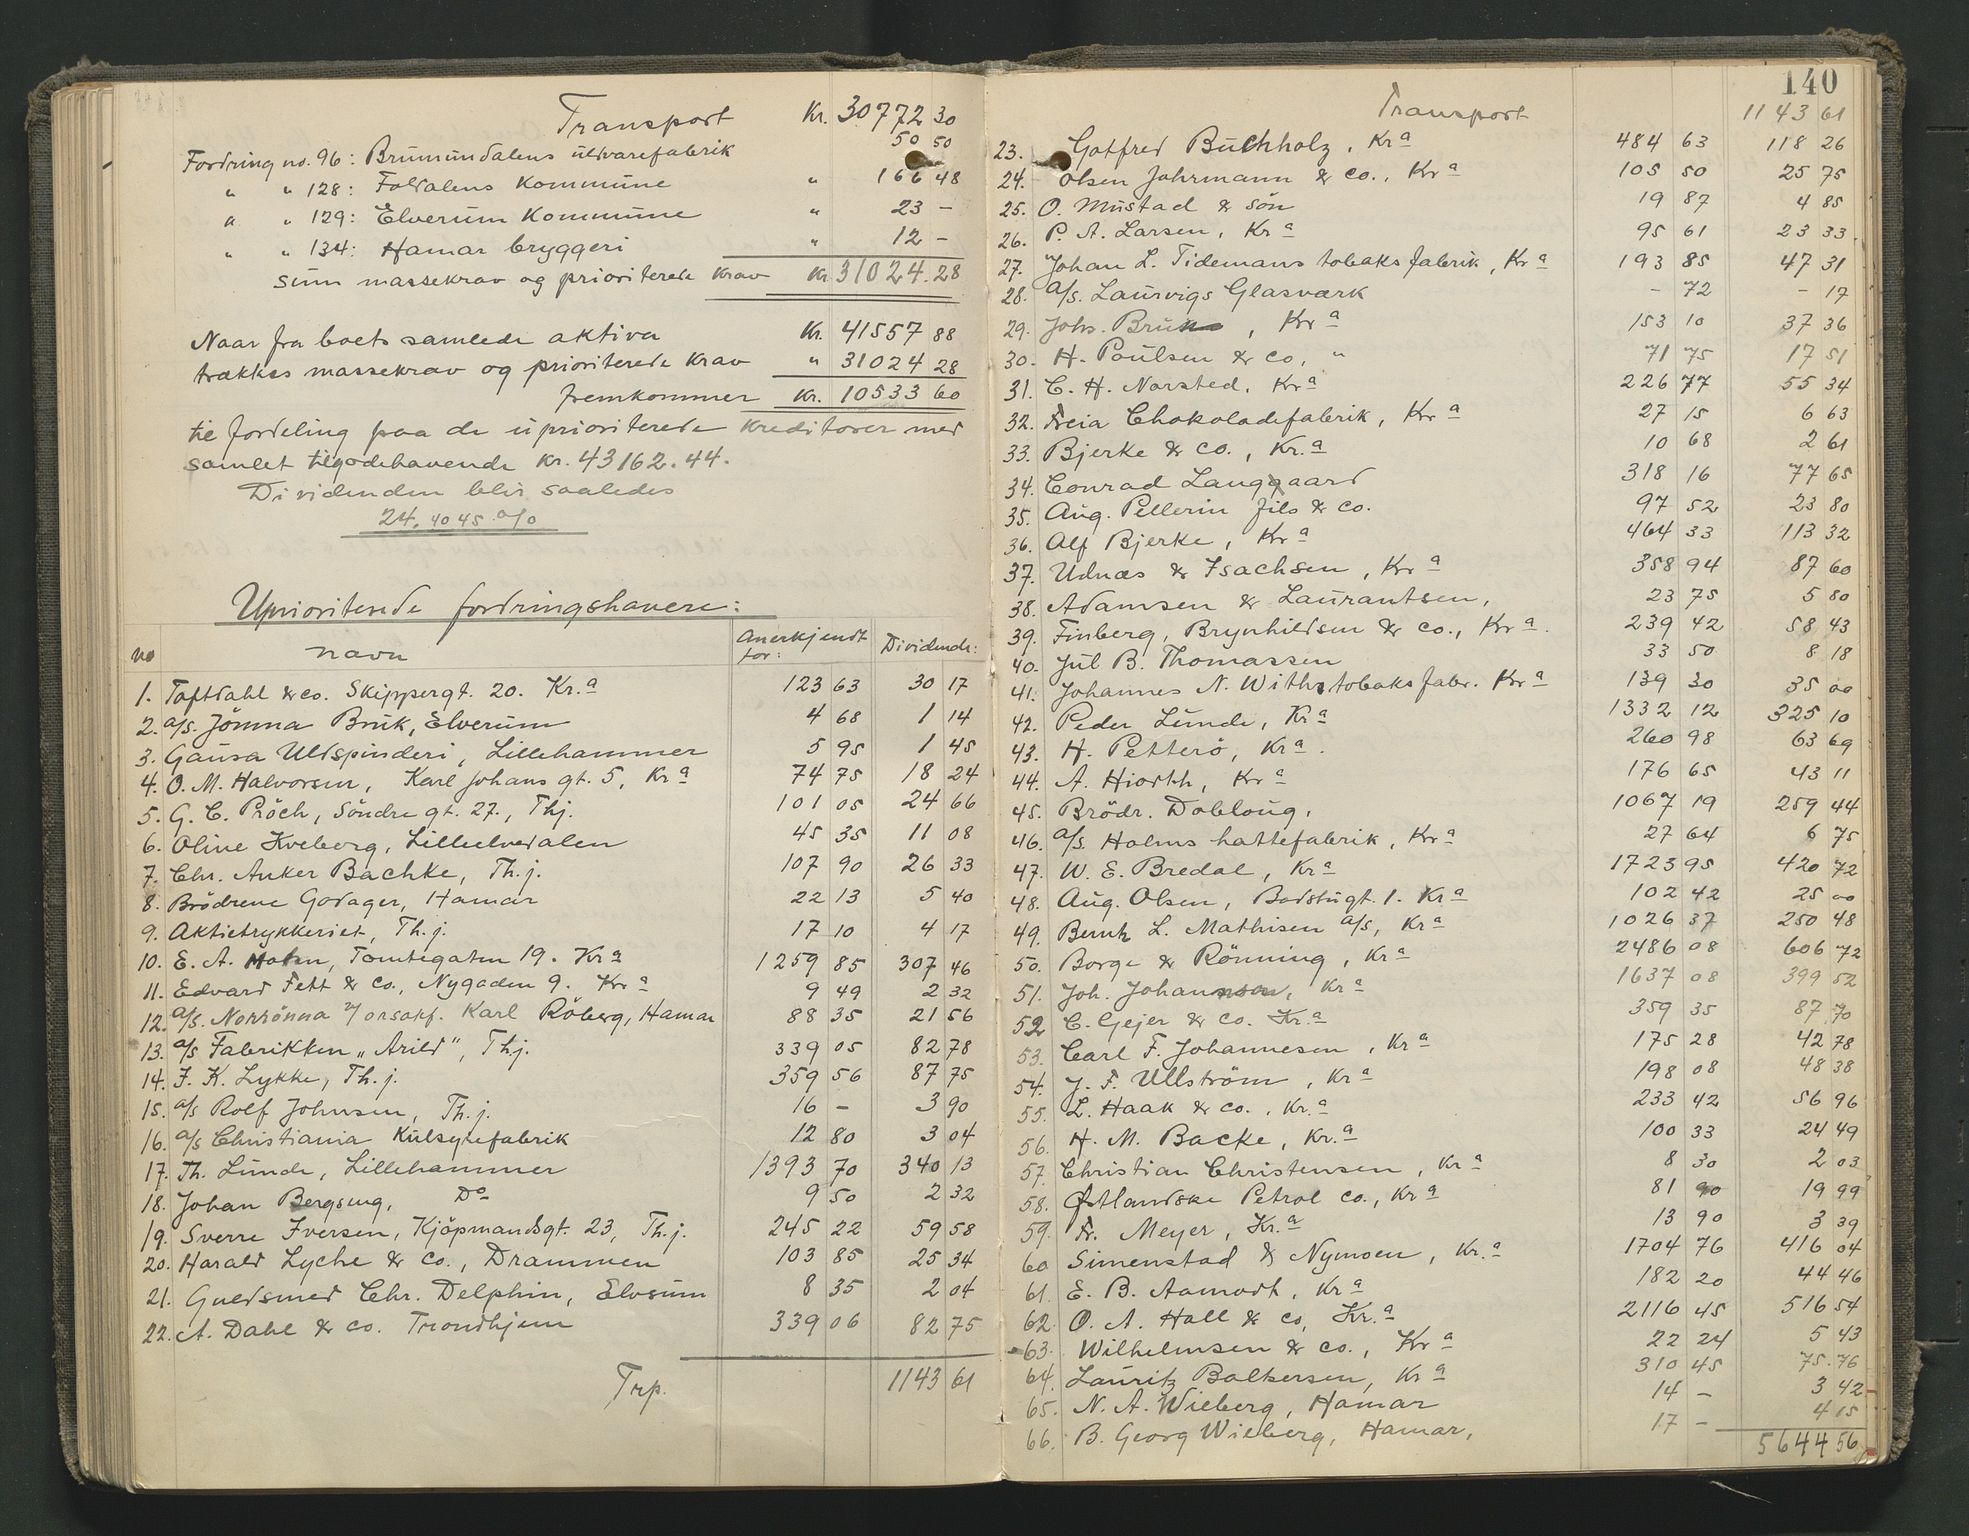 Transport Kr. 30772 30
Fordring no. 96: Brumunddalens uldvarefabrik 50 50
" " 128: Foldalens Kommune " 166 48
" " 129: Elverum Kommune " 23 –
" " 134: Hamar bryggeri " 12 –
sum massekrav og prioriterede krav Kr 31024.28
Naar fra boets samlede aktiva Kr. 41557 88
trækkes massekrav og prioriterede krav " 31024 28
fremkommer Kr. 10533 60
til fordeling paa de uprioriterede kreditorer med
samlet tilgodehavende Kr. 43162.44.
Dividenden blir saaledes
24,4045 o/o
Uprioriterede fordringshavere:
no navn Anerkjendt for: Dividende:
1. Toftdahl & co. Skippergt. 20. Kr.a 123 63 30 17
2. a/s. Jömna Bruk, Elverum 4 68 1 14
3. Gausa Uldspinderi, Lillehammer 5 95 1 45
4. O. M. Halvorsen, Karl Johans gt. 5, Kra 74 75 18 24
5. G. C. Pröch, Söndre gt. 27., Thj. 101 05 24 66
6. Oline Kveberg, Lilleelvedalen 45 35 11 08
7. Chr. Anker Bachke, Th.j. 107 90 26 33
8. Brödrene Godager, Hamar 22 13 5 40
9. Aktietrykkeriet, Th.j. 17 10 4 17
10. E. A. Tomtegaten 19. Kra 1259 85 307 46
11. Edvard Fett & Co., Nygaden 9. Kra 9 49 2 32
12. a/s. Norrönna v/ orsakf. Karl Röberg, Hamar 88 35 21 56
13. a/s Fabrikken „Arild", Thj. 339 05 82 78
14. F. K. Lykke, Th.j. 359 56 87 75
15. a/s Rolf Johnsen, Th.j. 16 – 3 90
16. a/s Christiania Kulsyrefabrik 12 80 3 04
17. Th. Lunde, Lillehammer 1393 70 340 13
18. Johan Bergseng, Do 9 50 2 32
19. Sverre Iversen, Kjöpmandsgt. 23, Th.j. 245 22 59 58
20. Harald Lyche & Co., Drammen 103 85 25 34
21. Guldsmed Chr. Delphin, Elvsum 8 35 2 04
22. A. Dahl & Co. Trondhjem 339 06 82 75
Trp. 1143 61
140
Transport 1143 61
23. Gotfred Buchholz, Kra 484 63 118 26
24. Olsen Jahrmann & Co., Kra 105 50 25 75
25. O. Mustad & sön 19 87 4 85
26. P. A. Larsen, Kra 95 61 23 33
27. Johan L. Tidemans tobaksfabrik, Kra 193 85 47 31
28. a/s. Laurvigs Glasværk – 72 – 17
29. Johs. Brun, Kra 153 10 37 36
30. H. Poulsen & Co, " 71 75 17 51
31. C. H. Norsted, Kra 226 77 55 34
32. Freia Chokoladefabrik, Kra 27 15 6 63
33. Bjerke & Co., Kr.a 10 68 2 61
34. Conrad Langgaard 318 16 77 65
35. Aug. Pellerin fils & Co. 97 52 23 80
36. Alf Bjerke, Kra 464 33 113 32
37. Udnæs & Isachsen, Kra 358 94 87 60
38. Adamsen & Laurantsen, 23 75 5 80
39. Finberg, Brynhildsen & Co., Kra. 239 42 58 43
40. Jul B. Thomassen 33 50 8 18
41. Johannes N. Withs tobaksfabr. Kra 139 30 35 00
42. Peder Lunde, Kra 1332 12 325 10
43. H. Petterö, Kra. 260 98 63 69
44. A. Hiorth, Kra 176 65 43 11
45. Brödr. Dobloug, 1067 19 259 44
46. a/s. Holms hattefabrik, Kra 27 64 6 75
47. W. E. Bredal, Kra 1723 95 420 72
48. Aug. Olsen, Badstugt. 1. Kra 102 42 25 00
49. Bernh L. Mathisen a/s, Kra 1026 37 250 48
50. Borge & Rönning, Kra 2486 08 606 72
51. Joh. Johannson, Kra 1637 08 399 52
52 C. Gejer & Co. Kr.a 359 35 87 70
53. Carl F. Johannesen, Kra 175 28 42 78
54. J. F. Ullström, Kra 198 08 48 38
55. L. Haak & Co., Kr.a 233 42 56 96
56. H. M. Backe, Kr.a 100 33 24 49
57. Christian Christensen, Kra 8 30 2 03
58. Østlandske Petrol Co., Kra 81 90 19 99
59. Fr. Meyer, Kr.a 13 90 3 39
60 Simenstad & Nymoen, Kr.a 1704 76 416 04
61. E. B. Aamodt, Kra 182 20 44 46
62. O. A. Hall & Co, Kr.a 2116 45 516 54
63. Wilhelmsen & Co., Kra 22 24 5 43
64. Lauritz Baltersen, Kra 310 45 75.76
65. N. A. Wieberg, Hamar 14 – 3 42
66. B. Georg Wieberg, Hamar, 17 – 4 15
5644 56